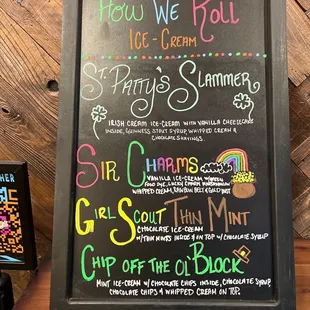 How We Roll
Ice-Cream
St. Patty's Slammer
Irish cream ice-cream with vanilla cheesecake
inside, Guinness stout syrup, whipped cream &
chocolate shavings.
Sir Charms
Vanilla ice-cream w/green
food dye, Lucky Charms marshmallow
whipped cream, rainbow belt & gold dust
Girl Scout Thin Mint
chocolate ice-cream
w/thin mints inside & on top w/ chocolate syrup
Chip off the ol' Block
Mint ice-cream w/ chocolate chips inside, chocolate syrup,
chocolate chips & whipped cream on top.